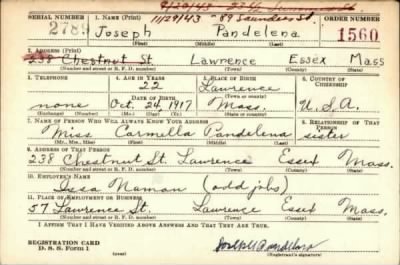 9/20/43
SERIAL NUMBER 1. NAME (Print) 11/29/43 - 89 Saunders St. ORDER NUMBER
2789 Joseph Pandelena 1560
(First) (Middle) (Last)
2. ADDRESS (Print)
238 Chestnut St. Lawrence Essex Mass
(Number and street or R. F. D. number) (Town) (County) (State)
3. TELEPHONE 4. AGE IN YEARS 5. PLACE OF BIRTH 6. COUNTRY OF CITIZENSHIP
22 Lawrence
DATE OF BIRTH (Town or county)
none Oct. 24, 1917 Mass. U.S.A.
(Exchange) (Number) (Mo.) (Day) (Yr.) (State or country)
7. NAME OF PERSON WHO WILL ALWAYS KNOW YOUR ADDRESS 8. RELATIONSHIP OF THAT PERSON
Miss Carmella Pandelena sister
(Mr., Mrs., Miss) (First) (Middle) (Last)
9. ADDRESS OF THAT PERSON
238 Chestnut St. Lawrence Essex Mass.
(Number and street or R. F. D. number) (Town) (County) (State)
10. EMPLOYER'S NAME
Issa Naman (odd jobs)
11. PLACE OF EMPLOYMENT OR BUSINESS
57 Lawrence St. Lawrence Essex Mass.
(Number and street or R. F. D. number) (Town) (County) (State)
I AFFIRM THAT I HAVE VERIFIED ABOVE ANSWERS AND THAT THEY ARE TRUE.
REGISTRATION CARD
D. S. S. Form 1 Joseph Pandelena
(Registrant's signature)